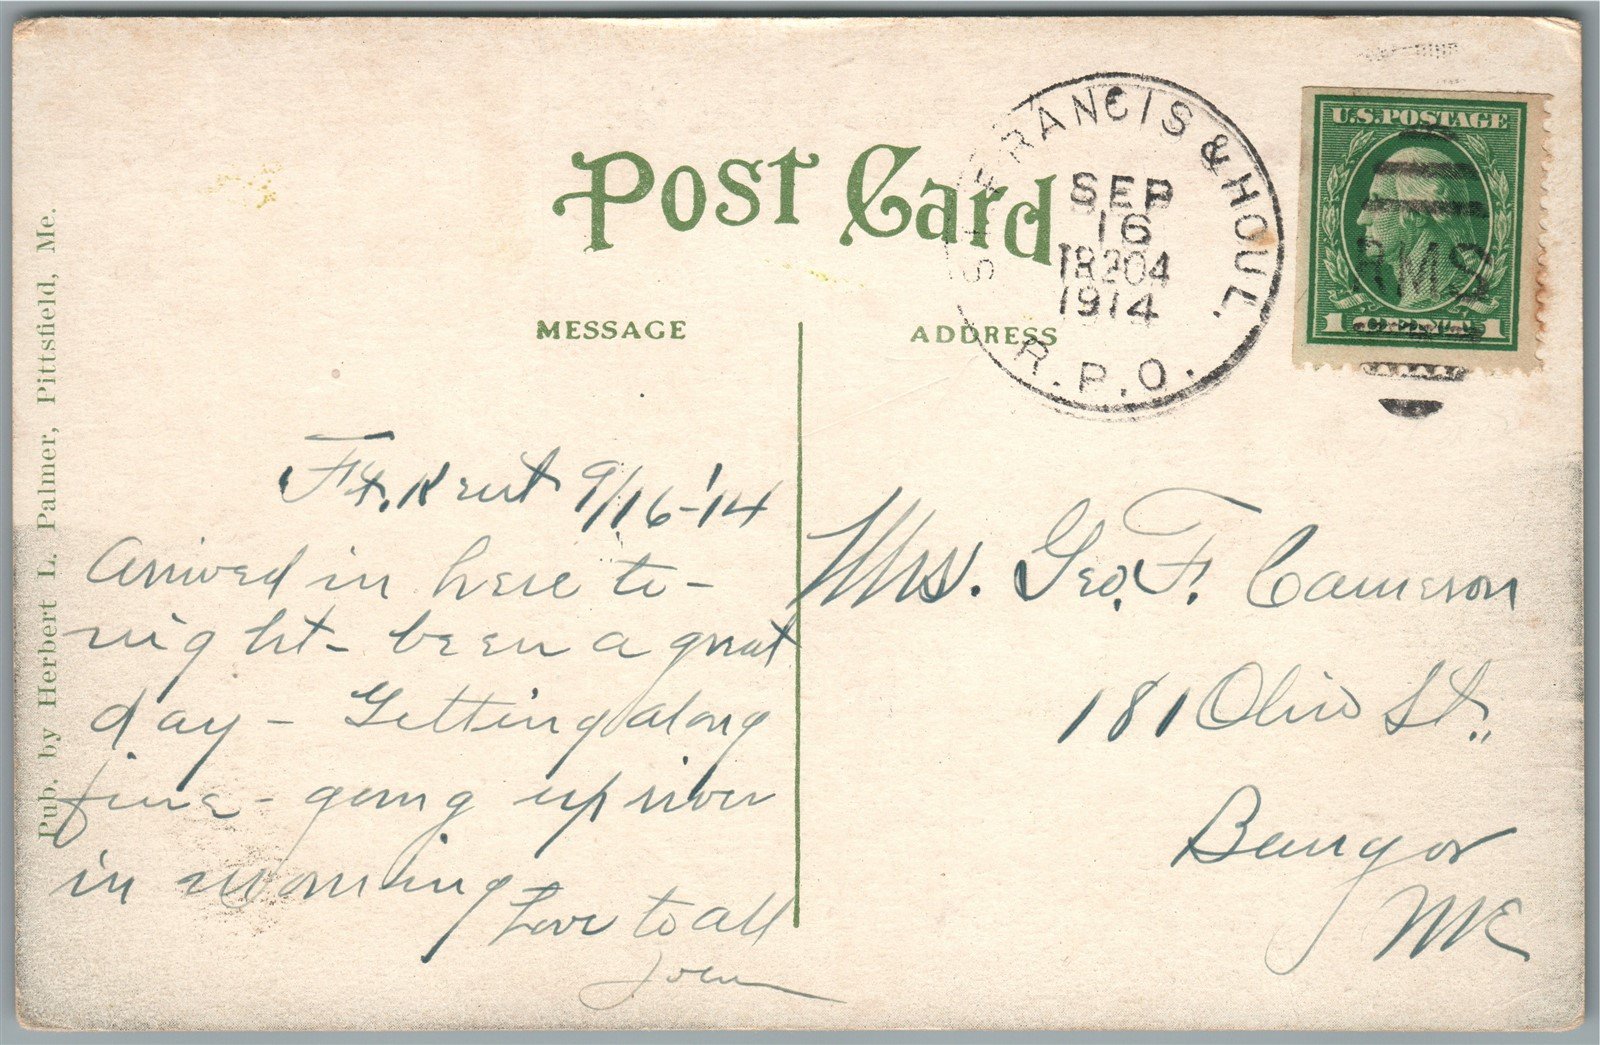 Post Card
MESSAGE
ADDRESS
ST. FRANCIS & HOUL.
SEP
16
TR204
1914
R.P.O.
U.S. POSTAGE
RMS
1 1
Pub. by Herbert L. Palmer, Pittsfield, Me.
Ft. Kent 9/16-'14
Arrived in here to-
night - been a great
day - Getting along
fine - going up river
in morning
Love to all
Mrs. Geo. F. Cameron
181 Olive St.,
Bangor
Me